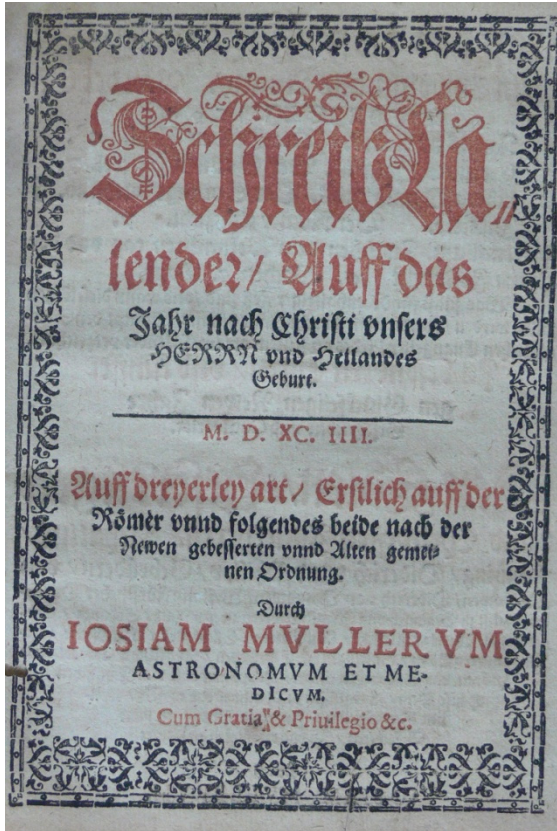 SchreibCa⸗
lender/ Auff das
Jahr nach Christi vnsers
HERRN vnd Heilandes
Geburt.
M. D. XC. IIII.
Auff dreyerley art/ Erstlich auff der
Römer vnnd folgendes beide nach der
Newen gebesserten vnnd Alten gemei⸗
nen Ordnung.
Durch
IOSIAM MVLLERVM
ASTRONOMVM ET ME-
DICVM.
Cum Gratia & Priuilegio &c.